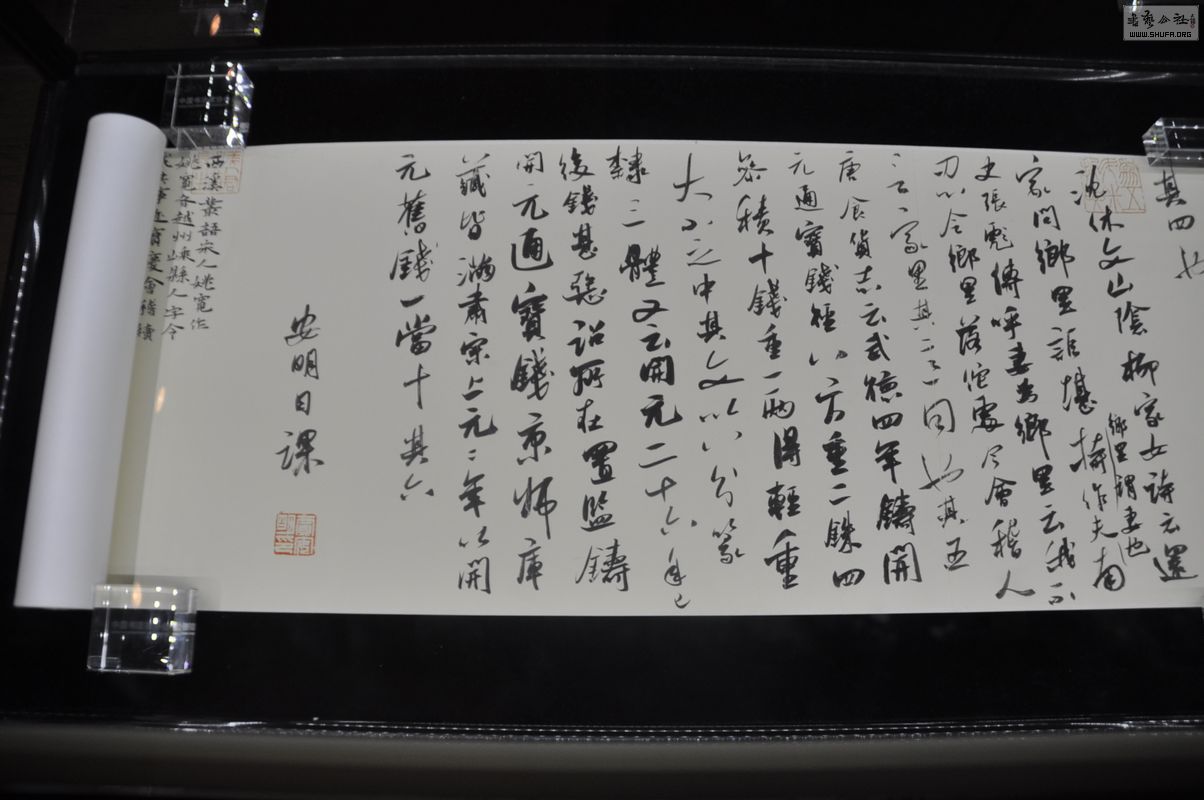 其四也
沈休文山陰柳家女詩云還
家問鄉里詎堪持作夫
鄉里謂妻也南
史張彪傳呼妻為鄉里云我不
忍令鄉里落佗處今會稽人
言家里其意同也其五
唐食貨志云武德四年鑄開
元通寶錢徑八分重二銖四
參積十錢重一兩得輕重
大小之中其文以八分篆
隸三體又云開元二十六年
後錢甚惡詔所在置監鑄
開元通寶錢京師庫
藏皆滿肅宗上元二年以開
元舊錢一當十其六
安明日課
西溪叢語宋人姚寬作
姚寬
越州嵊縣人字令
書藝公社
WWW.SHUFA.ORG